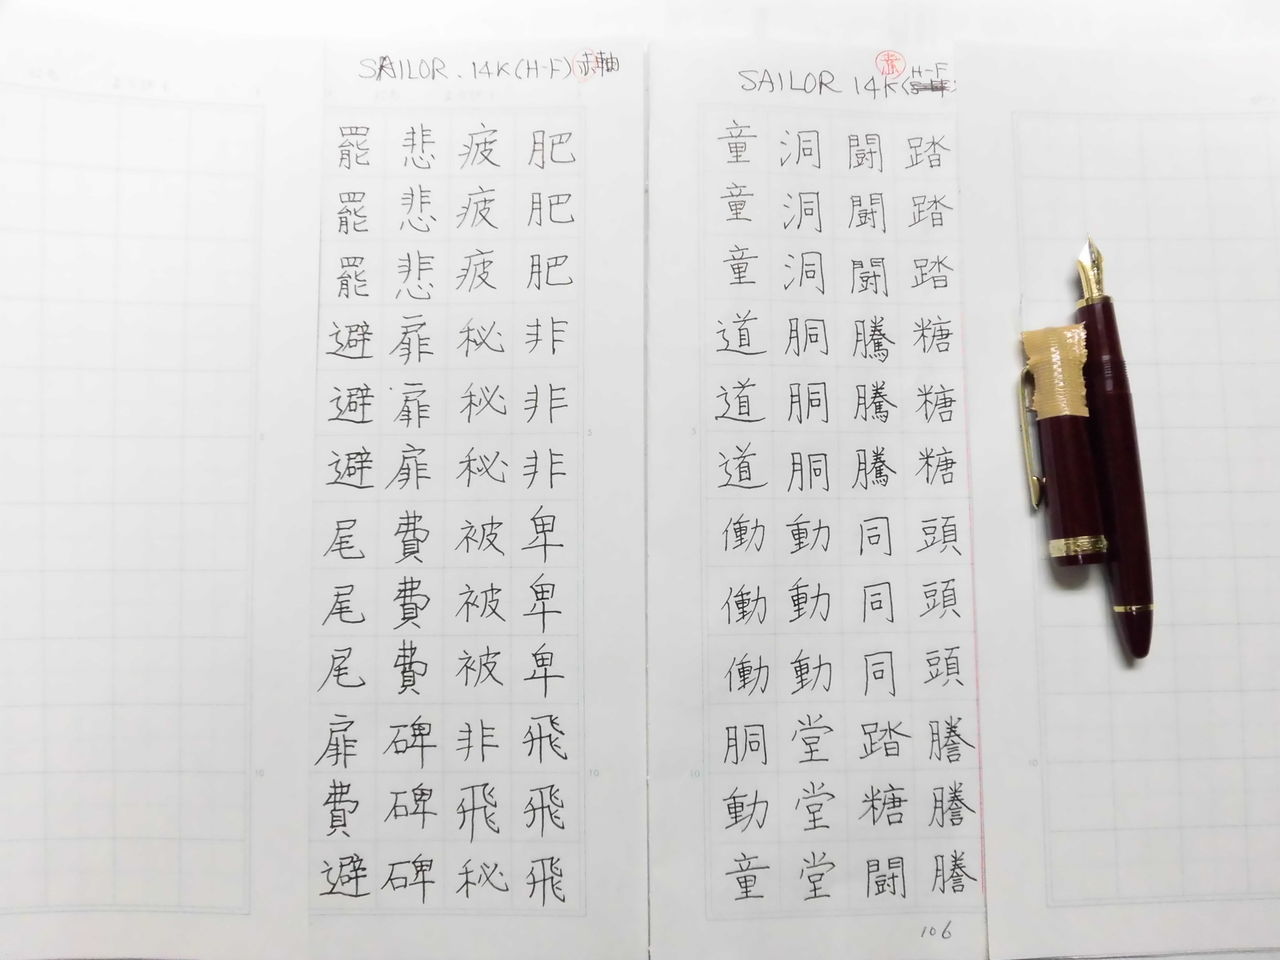 SAILOR 14K (H-F
踏踏踏糖糖糖頭頭頭謄謄謄
闘闘闘騰騰騰同同同踏糖闘
洞洞洞胴胴胴動動動堂堂堂
童童童道道道働働働胴動童
106
SAILOR. 14K (H-F) 赤軸
肥肥肥非非非卑卑卑飛飛飛
疲疲疲秘秘秘被被被非飛秘
悲悲悲扉扉扉費費費碑碑碑
罷罷罷避避避尾尾尾扉費避
5
10
5
10
10